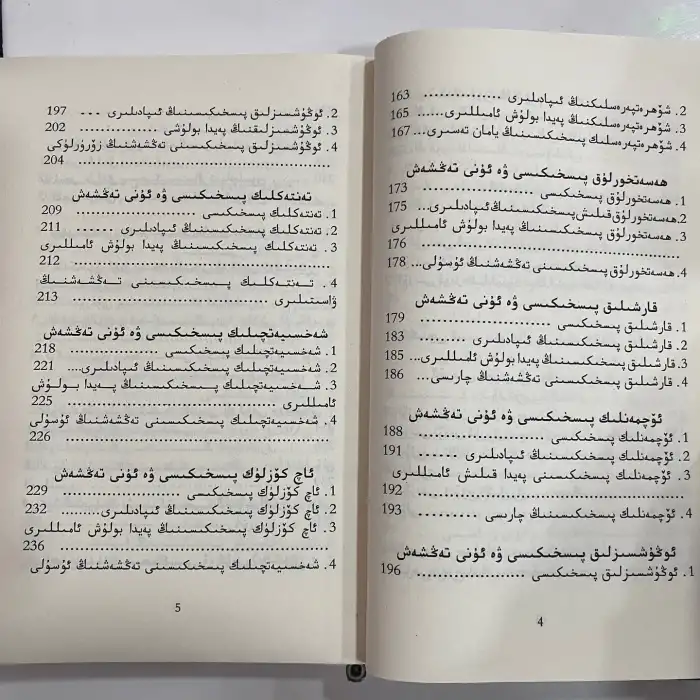 2. شۆھرەتپەرەسلىكنىڭ ئىپادىلىرى ............... 163
3. شۆھرەتپەرەسلىكنىڭ پەيدا بولۇش ئامىللىرى...... 165
4. شۆھرەتپەرەسلىك پىسخىكىسىنىڭ يامان تەسىرى... 167
ھەسەتخورلۇق پىسخىكىسى ۋە ئۇنى تەڭشەش
1. ھەسەتخورلۇق پىسخىكىسى .................... 173
2.ھەسەتخورلۇق قىلىش پىسخىكىسىنىڭ ئىپادىلىرى... 175
3. ھەسەتخورلۇق پىسخىكىسىنىڭ پەيدا بولۇش ئامىللىرى
................................................ 176
4.ھەسەتخورلۇق پىسخىكىسىنى تەڭشەشنىڭ ئۇسۇلى... 178
قارشىلىق پىسخىكىسى ۋە ئۇنى تەڭشەش
1. قارشىلىق پىسخىكىسى ........................ 179
2. قارشىلىق پىسخىكىسىنىڭ ئىپادىلىرى .......... 183
3. قارشىلىق پىسخىكىسىنىڭ پەيدا بولۇش ئامىللىرى... 185
4. قارشىلىق پىسخىكىسىنى تەڭشەشنىڭ چارىسى... 186
ئۆچمەنلىك پىسخىكىسى ۋە ئۇنى تەڭشەش
1. ئۆچمەنلىك پىسخىكىسى ...................... 188
2. ئۆچمەنلىك پىسخىكىسىنىڭ ئىپادىلىرى ...... 191
3. ئۆچمەنلىك پىسخىكىسىنى پەيدا قىلىش ئامىللىرى
................................................ 192
4. ئۆچمەنلىك پىسخىكىسىنىڭ چارىسى .......... 193
ئوڭۇشسىزلىق پىسخىكىسى ۋە ئۇنى تەڭشەش
1. ئوڭۇشسىزلىق پىسخىكىسى .................... 196
4
2. ئوڭۇشسىزلىق پىسخىكىسىنىڭ ئىپادىلىرى ... 197
3. ئوڭۇشسىزلىقنىڭ پەيدا بولۇشى ............... 202
4. ئوڭۇشسىزلىق پىسخىكىسىنى تەڭشەشنىڭ زۆرۈرلۈكى
................................................ 204
تەنتەكلىك پىسخىكىسى ۋە ئۇنى تەڭشەش
1. تەنتەكلىك پىسخىكىسى ...................... 209
2. تەنتەكلىك پىسخىكىسىنىڭ ئىپادىلىرى ...... 211
3. تەنتەكلىك پىسخىكىسىنىڭ پەيدا بولۇش ئامىللىرى
................................................ 212
4. تەنتەكلىك پىسخىكىسىنى تەڭشەشنىڭ
ۋاستىلىرى .................................... 213
شەخسىيەتچىلىك پىسخىكىسى ۋە ئۇنى تەڭشەش
1. شەخسىيەتچىلىك پىسخىكىسى ................ 218
2. شەخسىيەتچىلىك پىسخىكىسىنىڭ ئىپادىلىرى.... 221
3. شەخسىيەتچىلىك پىسخىكىسىنىڭ پەيدا بولۇش
ئامىللىرى ...................................... 225
4. شەخسىيەتچىلىك پىسخىكىسىنى تەڭشەشنىڭ ئۇسۇلى
................................................ 226
ئاچ كۆزلۈك پىسخىكىسى ۋە ئۇنى تەڭشەش
1. ئاچ كۆزلۈك پىسخىكىسى .................... 229
2. ئاچ كۆزلۈك پىسخىكىسىنىڭ ئىپادىلىرى.......... 232
3. ئاچ كۆزلۈك پىسخىكىسىنىڭ پەيدا بولۇش ئامىللىرى
................................................ 236
4. شەخسىيەتچىلىك پىسخىكىسىنى تەڭشەشنىڭ ئۇسۇلى
5